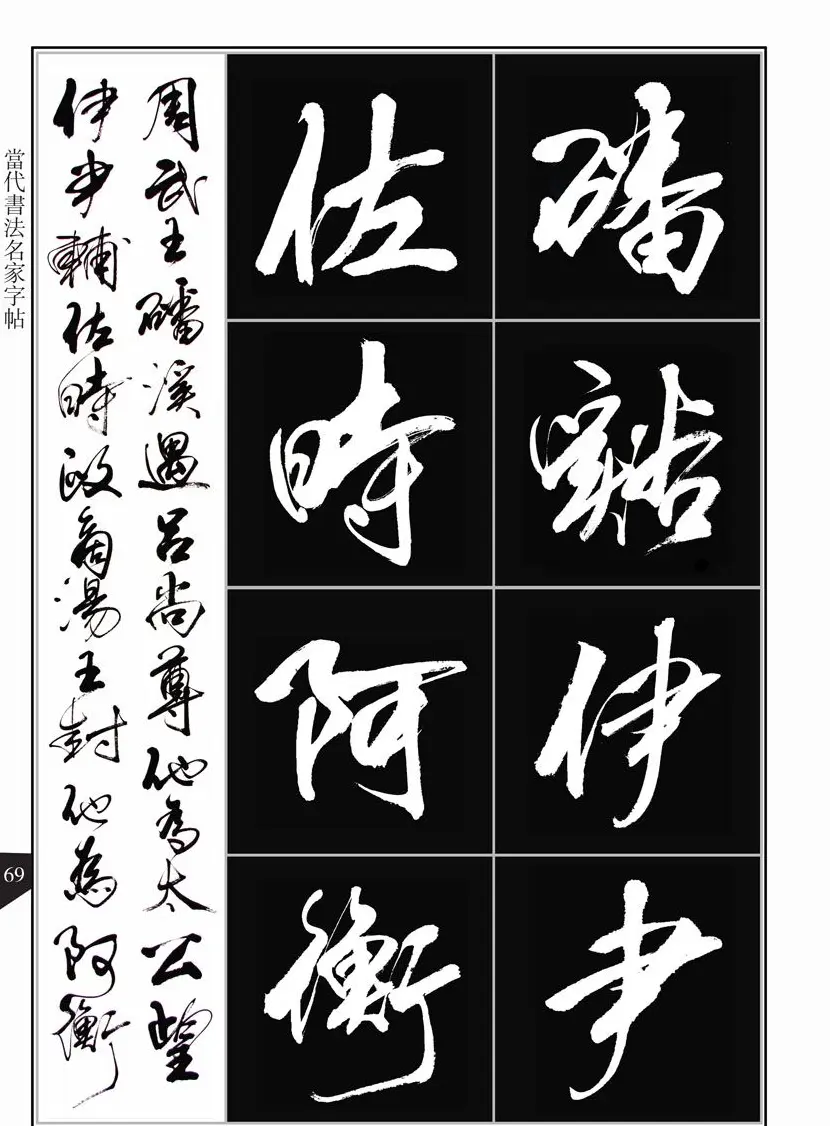 磻谿伊尹
佐時阿衡
周武王磻溪遇呂尚尊他為太公望
伊尹輔佐時政商湯王封他為阿衡
當代書法名家字帖
69